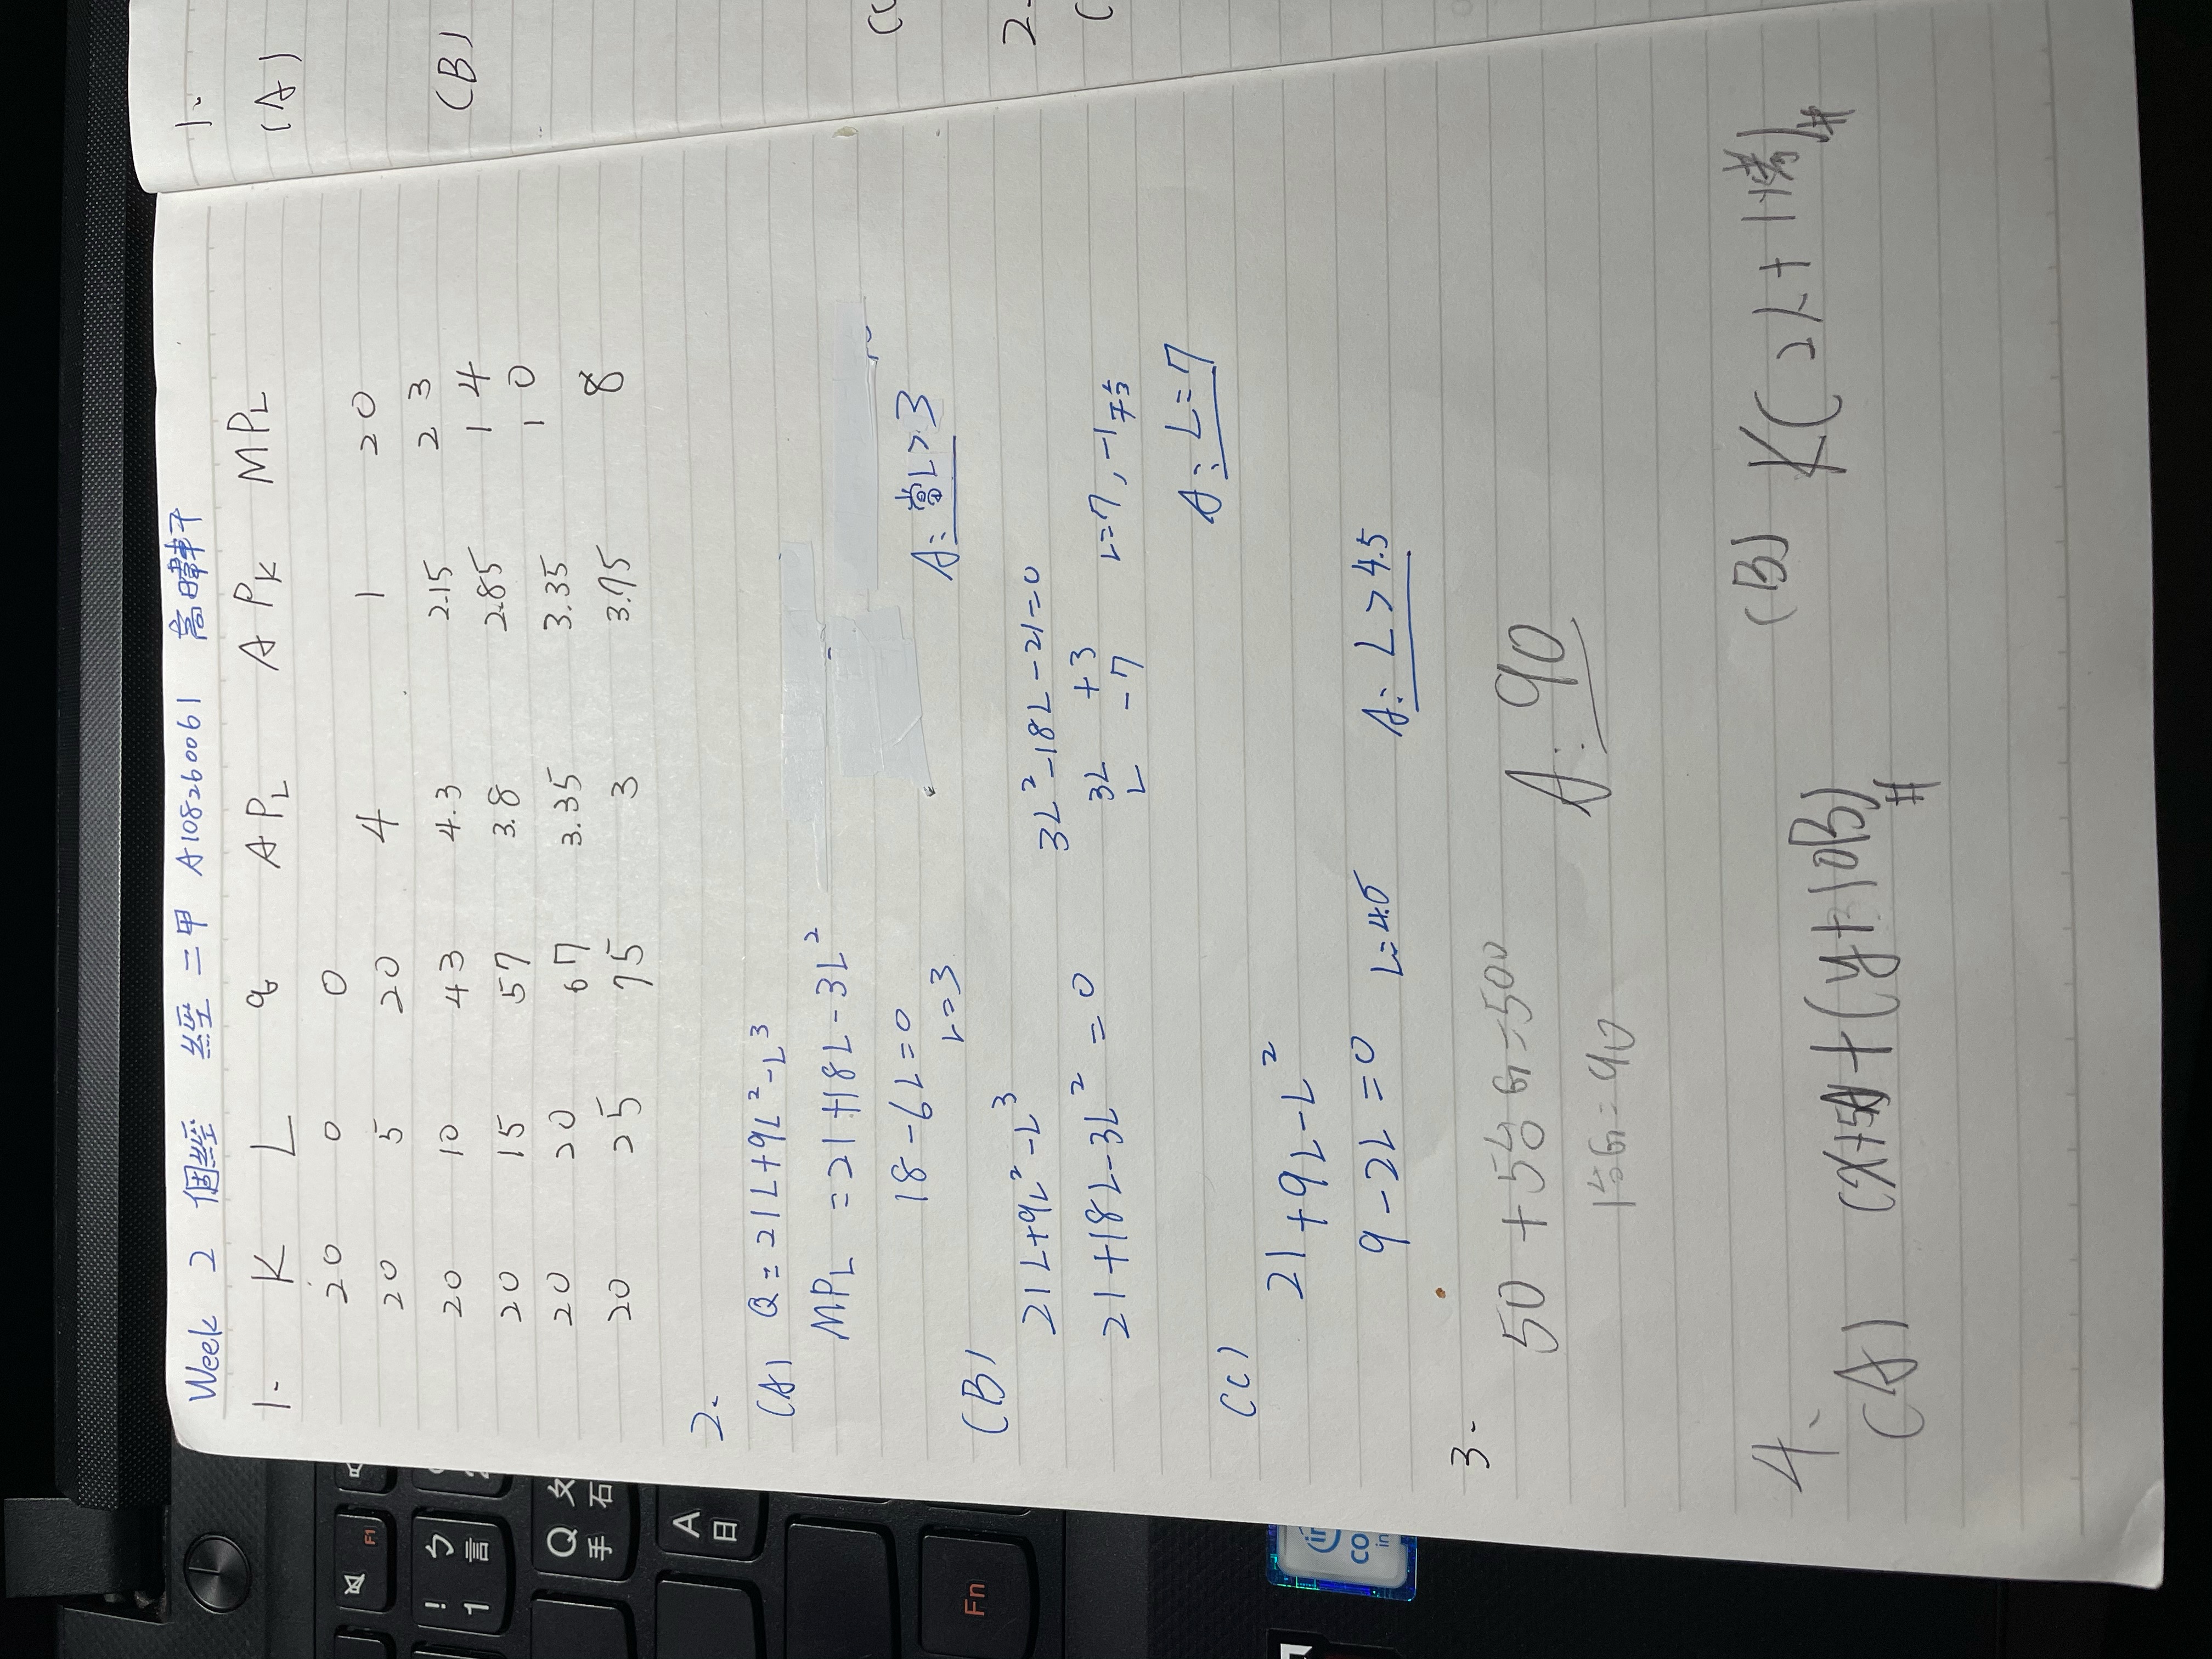 Week 2 個經 經二甲 A108260061 高暐軒
1. K L q APL APK MPL
20 0 0
20 5 20 4 1 20
20 10 43 4.3 2.15 23
20 15 57 3.8 2.85 14
20 20 67 3.35 3.35 10
20 25 75 3 3.75 8
2.
(A) Q = 21L+9L²-L³
MPL = 21+18L-3L²
18-6L=0
L=3
A: 當L>3
(B)
21L+9L²-L³
21+18L-3L² = 0
3L²-18L-21=0
3L +3
L -7
L=7, -1不合
A: L=7
(C)
21+9L-L²
9-2L=0 L=4.5
A: L>4.5
3.
50 + 5台G=500
1台G=90
A: 90
4.
(A) (x+5A)+(y+10B)#
(B) K(2L+1烤)#
1.
(A)
(B)
(C
2.
(
! ㄅ
1 言
Q ㄆ
手 石
A
日
Fn
F1
in
CO
in